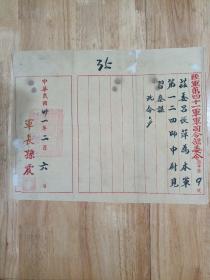 陸軍第四十一軍軍司令部委令
9
號
茲委呂從萍為本軍
第一二四師中尉見
習參謀
此令
35
中華民國卅一年二月六日
軍長孫震